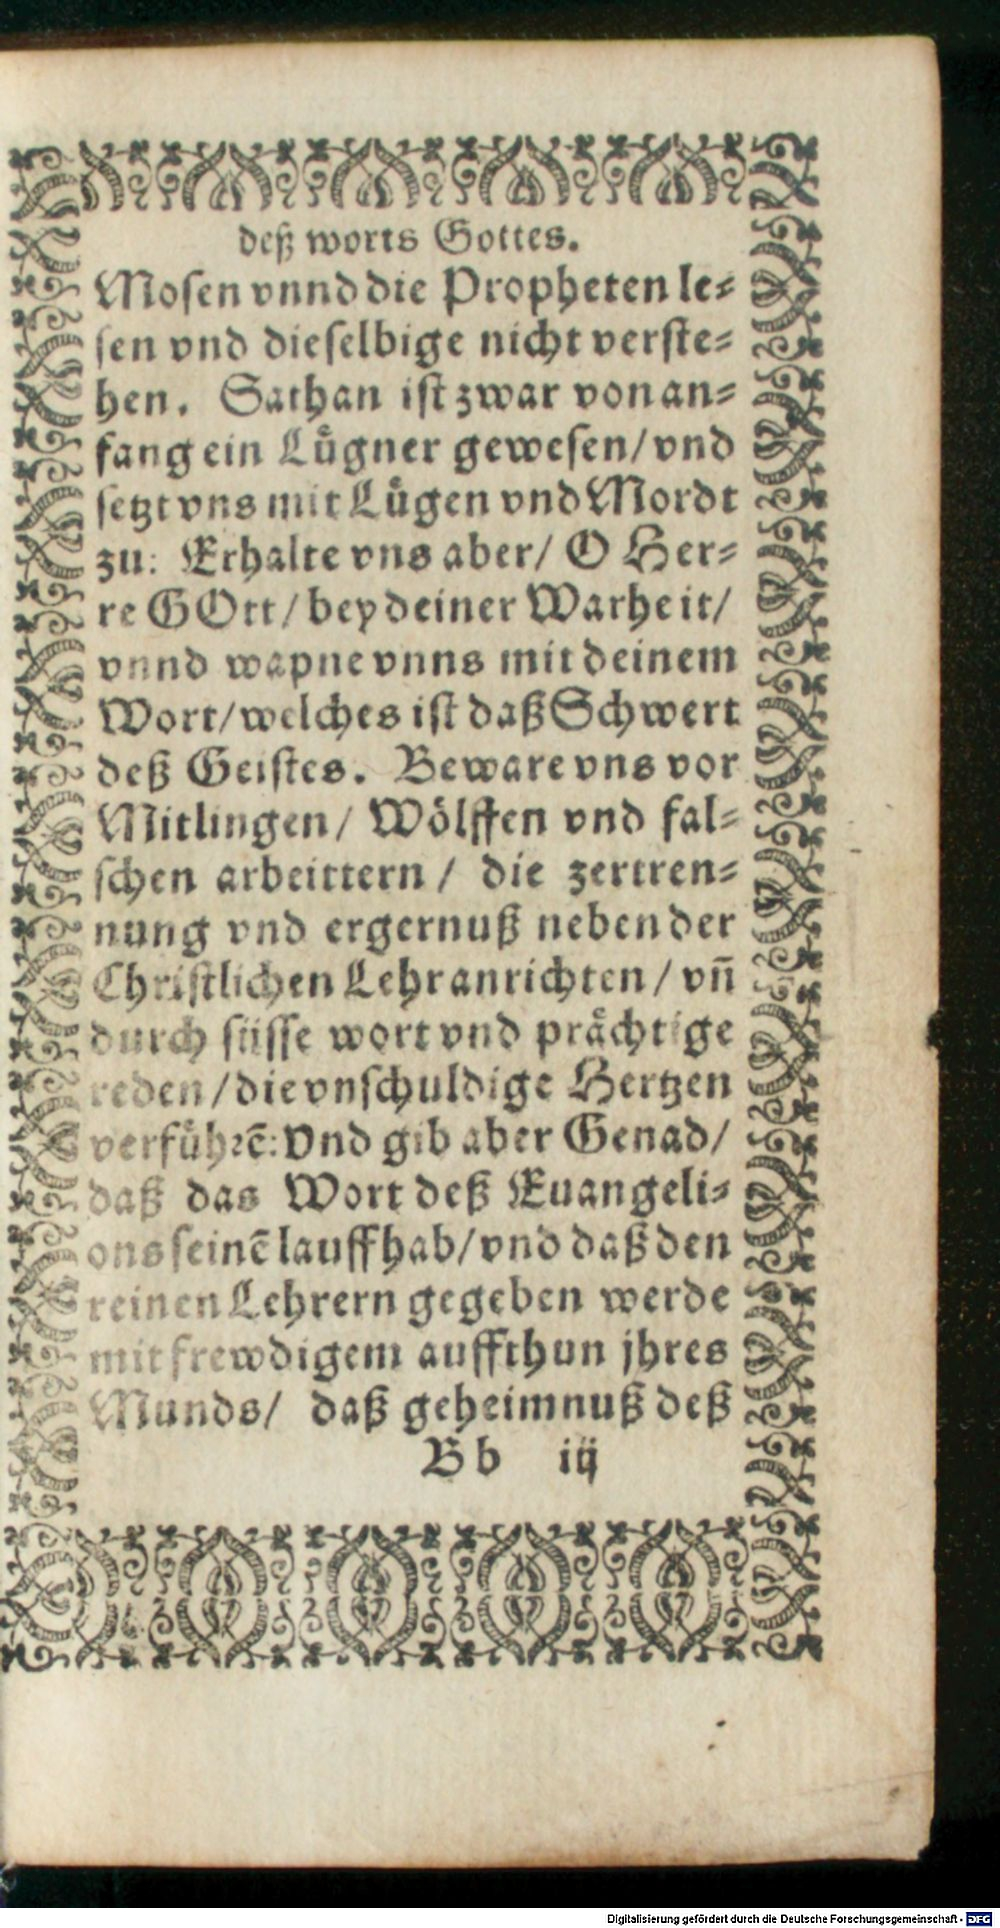 deß worts Gottes.
Moſen vnnd die Propheten le⸗
ſen vnd dieſelbige nicht verſte⸗
hen. Sathan iſt zwar von an⸗
fang ein Lügner geweſen/ vnd
ſetzt vns mit Lügen vnd Mordt
zu: Erhalte vns aber/ O Her⸗
re GOtt/ bey deiner Warheit/
vnnd wapne vnns mit deinem
Wort/ welches iſt daß Schwert
deß Geiſtes. Beware vns vor
Mitlingen/ Wölffen vnd fal⸗
ſchen arbeittern/ die zertren⸗
nung vnd ergernuß neben der
Chriſtlichen Lehr anrichten/ vn̄
durch ſüſſe wort vnd prächtige
reden/ die vnſchuldige Hertzen
verführē: Vnd gib aber Genad/
daß das Wort deß Euangeli⸗
ons ſeinē lauff hab/ vnd daß den
reinen Lehrern gegeben werde
mit frewdigem auffthun jhres
Munds/ daß geheimnuß deß
Bb iij
Digitalisierung gefördert durch die Deutsche Forschungsgemeinschaft - DFG